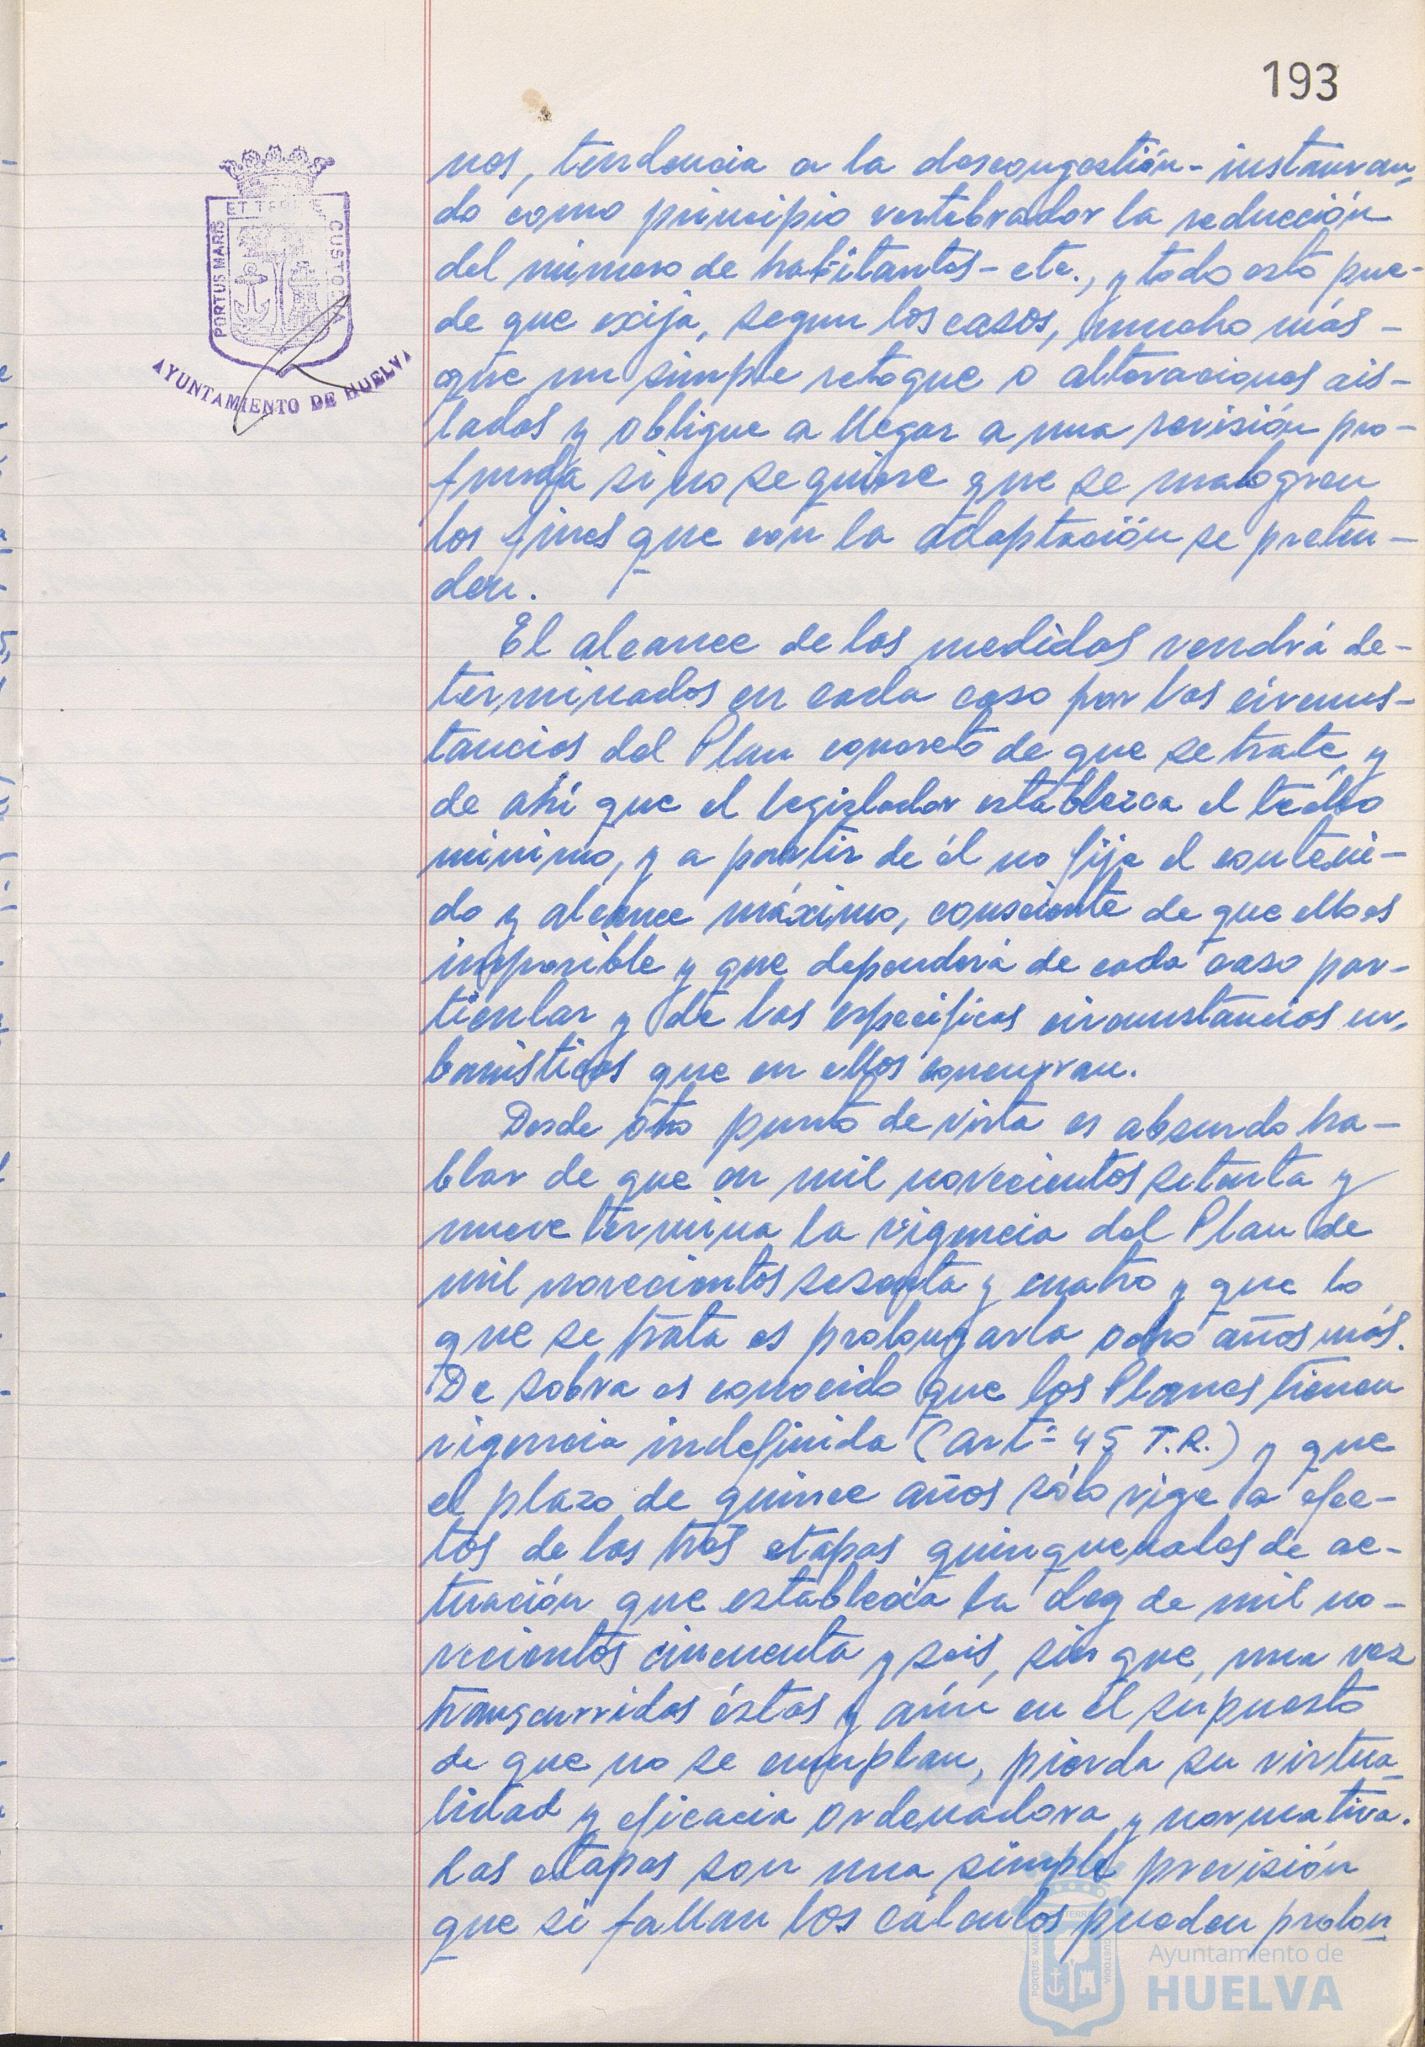 193
nos, tendencia a la descongestión-instauran-
do como principio vertebrador la reducción
del número de habitantes-etc., y todo esto pue-
de que exija, segun los casos, mucho más-
que un simple retoque o alteraciones ais-
lados y obligue a llegar a una revisión pro-
funda si no se quiere que se malogren
los fines que con la adaptación se preten-
den.
El alcance de las medidas vendrá de-
terminados en cada caso por las circuns-
tancias del Plan concreto de que se trate, y
de ahí que el legislador establezca el techo
mínimo, y a partir de él no fije el conteni-
do y alcance máximo, consciente de que ello es
imposible y que dependerá de cada caso par-
ticular y de las específicas circunstancias ur-
banísticas que en ellos concurran.
Desde otro punto de vista es absurdo ha-
blar de que en mil novecientos setenta y
nueve termina la vigencia del Plan de
mil novecientos sesenta y cuatro y que lo
que se trata es prolongarla ocho años más.
De sobra es conocido que los Planes tienen
vigencia indefinida (artº 45 T.R.) y que
el plazo de quince años sólo rige a efec-
tos de las tres etapas quinquenales de ac-
tuación que establecía la Ley de mil no-
vecientos cincuenta y seis, sin que, una vez
transcurridas éstas y aún en el supuesto
de que no se cumplan, pierda su virtua-
lidad y eficacia ordenadora y normativa.
Las etapas son una simple previsión
que si fallan los cálculos pueden prolon-
PORTUS MARIS ET TERRAE CUSTODIA
AYUNTAMIENTO DE HUELVA
Ayuntamiento de
HUELVA